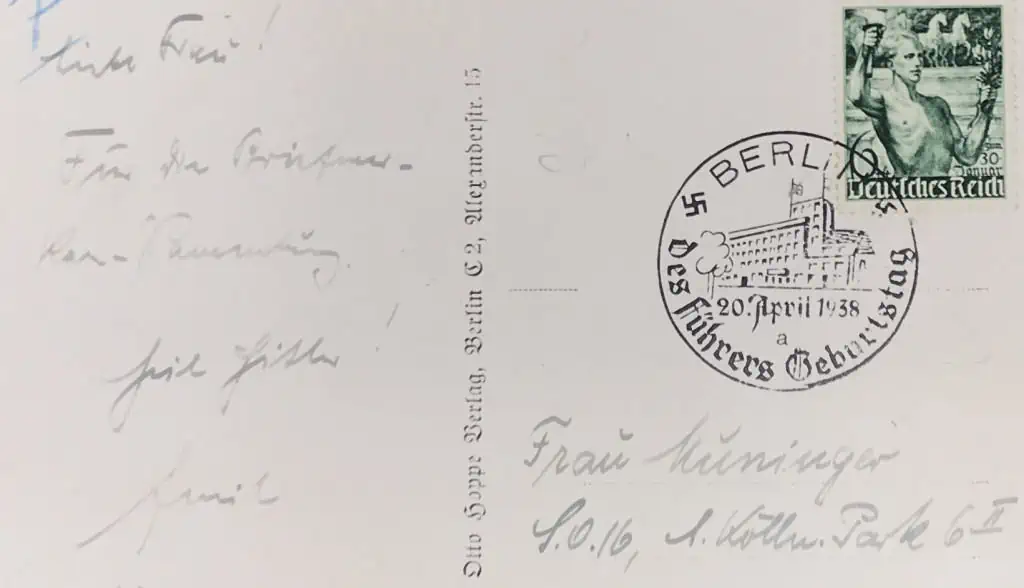 Liebe Frau!
Für die Briefmar-
ken-Sammlung.
Heil Hitler!
Emil
Otto Hoppe Verlag, Berlin C 2, Alexanderstr. 15
6
30
Januar
Deutsches Reich
BERLIN
20. April 1938
a
des Führers Geburtstag
Frau Muninger
S.O.16, A. Kölln. Park 6 II